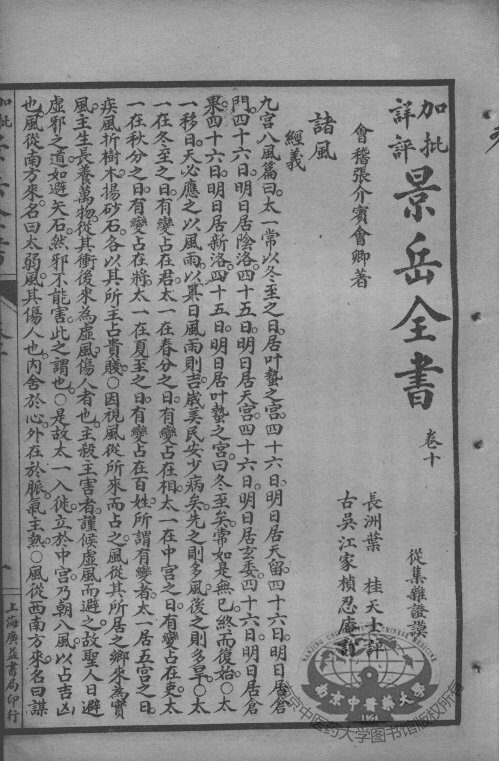 加批詳評景岳全書 卷十 從集雜證謨
會稽張介賓會卿著
長洲葉 桂天士評
古吳江家楨忍庵訂
諸風
經義
九宮八風篇曰太一常以冬至之日居叶蟄之宮四十六日明日居天留四十六日明日居倉
門四十六日明日居陰洛四十五日明日居天宮四十六日明日居玄委四十六日明日居倉
果四十六日明日居新洛四十五日明日居叶蟄之宮曰冬至矣常如是無已終而復始○太
一移日天必應之以風雨以其日風雨則吉歲美民安少病矣先之則多風後之則多旱○太
一在冬至之日有變占在君太一在春分之日有變占在相太一在中宮之日有變占在吏太
一在秋分之日有變占在將太一在夏至之日有變占在百姓所謂有變者太一居五宮之日
疾風折樹木揚砂石各以其所主占貴賤○因視風從所來而占之風從其所居之鄉來為實
風主生長養萬物從其衝後來為虛風傷人者也主殺主害者謹候虛風而避之故聖人日避
虛邪之道如避矢石然邪不能害此之謂也○是故太一入徙立於中宮乃朝八風以占吉凶
也風從南方來名曰大弱風其傷人也內舍於心外在於脈氣主熱○風從西南方來名曰謀
上海廣益書局印行
南京中醫藥大學
南京中医药大学图书馆版权所有